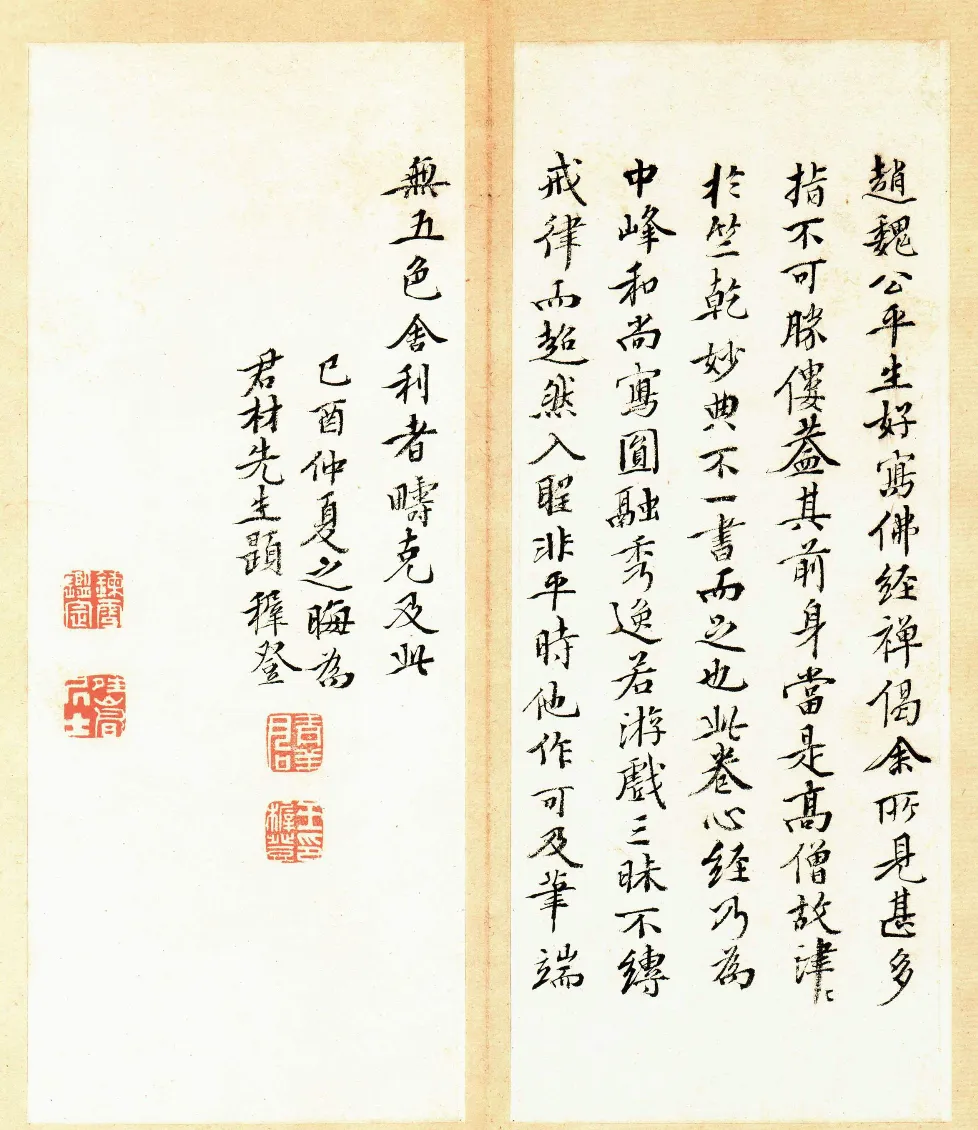 趙魏公平生好寫佛經禅偈余所見甚多
指不可勝僂葢其前身當是高僧故津〻
於竺乾妙典不一書而已也此卷心經乃為
中峰和尚寫圓融秀逸若游戲三昧不縛
戒律而超然入聖非平時他作可及筆端
無五色舍利者疇克及此
己酉仲夏之晦為
君材先生題穉登
王穉登印